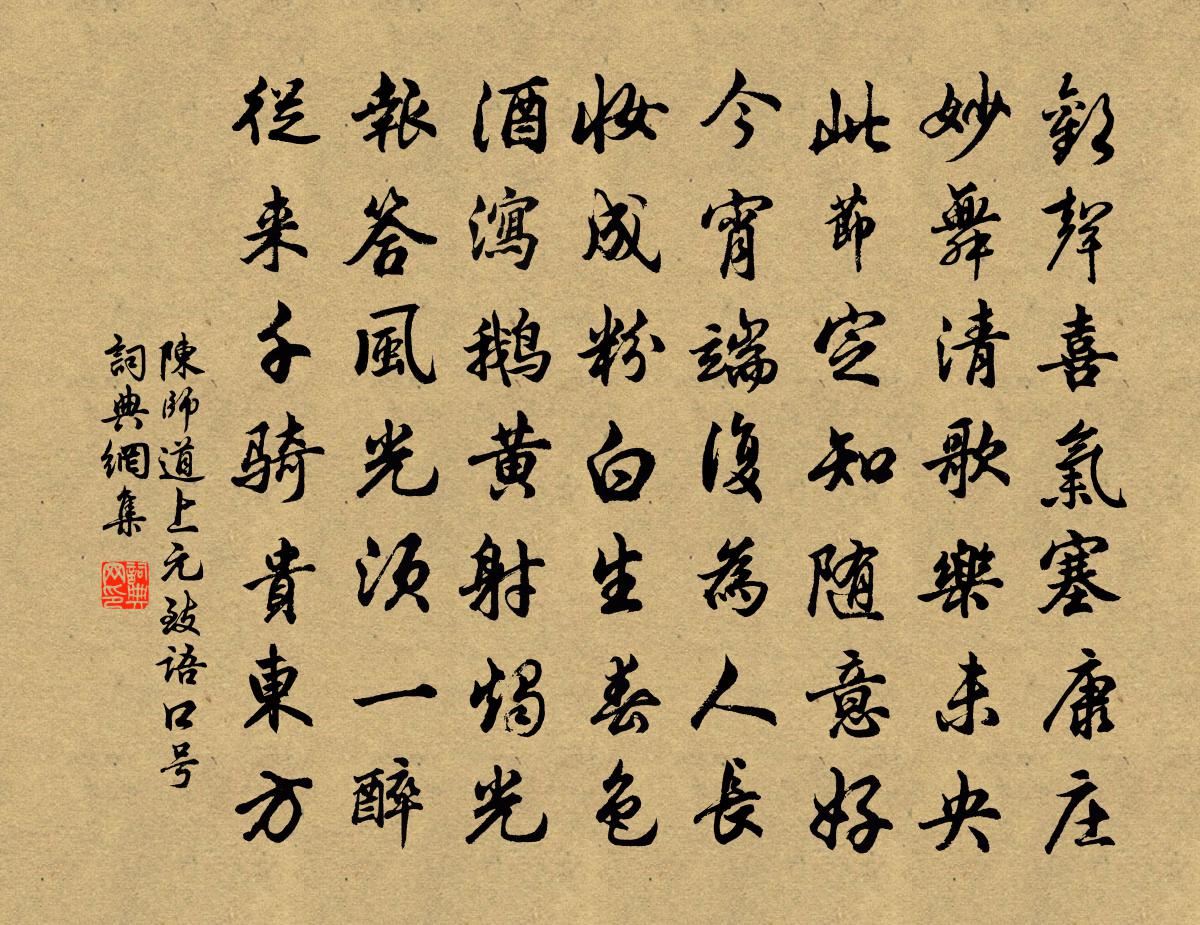 歡聲喜氣塞康庄
妙舞清歌樂未央
此節定知随意好
今宵端復為人長
妝成粉白生春色
酒瀉鵝黄射燭光
報答風光須一醉
從来千騎貴東方
陳師道上元致語口号
詞典網集
詞典网印